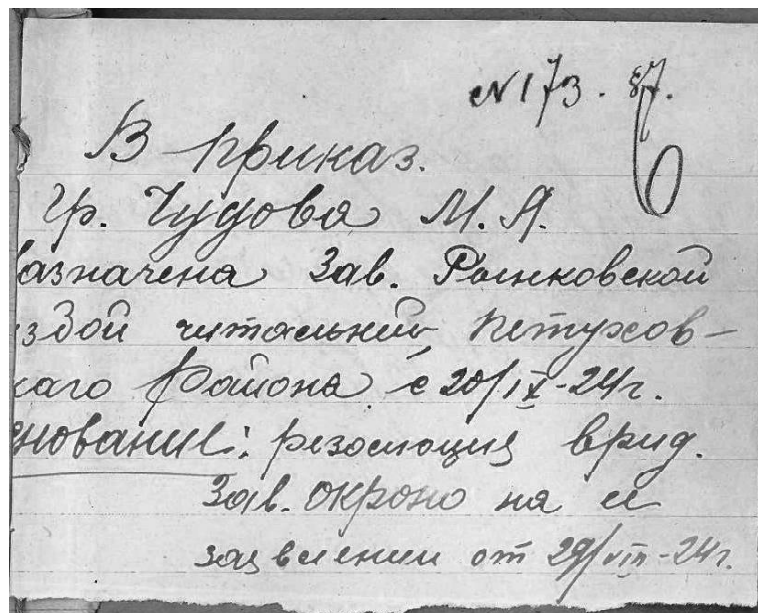 №173. 87.
В приказ.
Гр. Чудова М. Я.
азначена Зав. Рынковской
збой читальний, Петухов-
каго Района с 20/IX-24г.
снование: резолюция врид.
Зав. ОКРОНО на ее
заявлении от 29/VIII-24г.